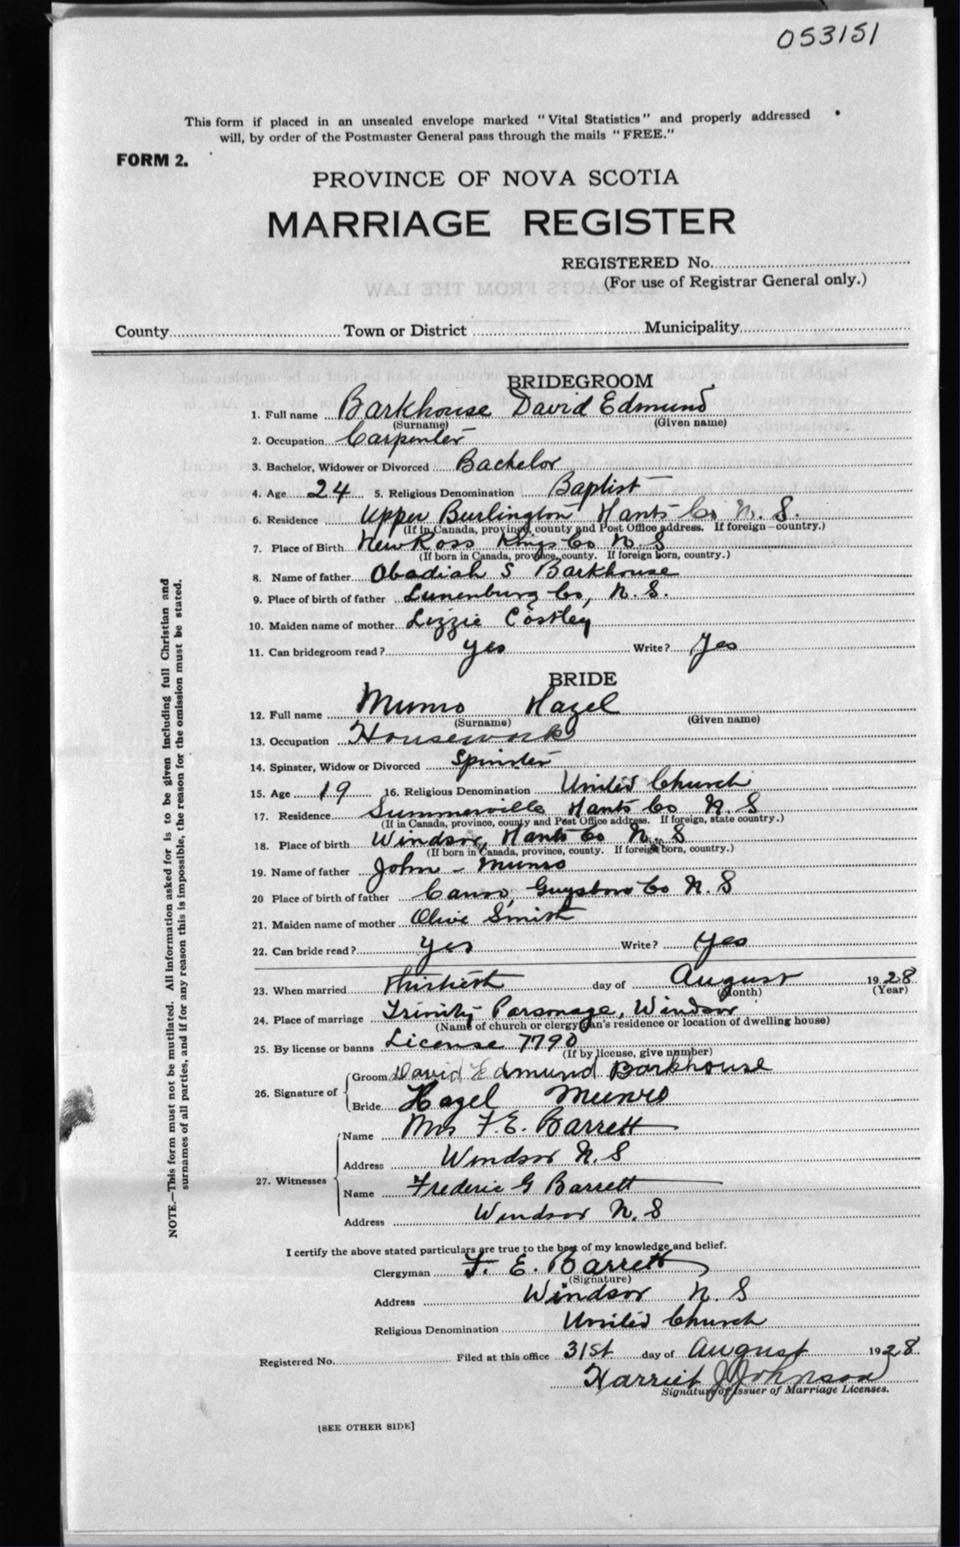 053151
This form if placed in an unsealed envelope marked "Vital Statistics" and properly addressed
will, by order of the Postmaster General pass through the mails "FREE."
FORM 2.
PROVINCE OF NOVA SCOTIA
MARRIAGE REGISTER
REGISTERED No.
(For use of Registrar General only.)
County Town or District Municipality
BRIDEGROOM
1. Full name Barkhouse David Edmund
(Surname) (Given name)
2. Occupation Carpenter
3. Bachelor, Widower or Divorced Bachelor
4. Age 24 5. Religious Denomination Baptist
6. Residence Upper Burlington Hants Co N. S.
(If in Canada, province, county and Post Office address. If foreign country.)
7. Place of Birth New Ross Kings Co N S
(If born in Canada, province, county. If foreign born, country.)
8. Name of father Obadiah S Barkhouse
9. Place of birth of father Lunenburg Co, N. S.
10. Maiden name of mother Lizzie Costley
11. Can bridegroom read? Yes Write? Yes
BRIDE
12. Full name Munro Hazel
(Surname) (Given name)
13. Occupation Housework
14. Spinster, Widow or Divorced Spinster
15. Age 19 16. Religious Denomination United Church
17. Residence Summerville Hants Co N. S
(If in Canada, province, county and Post Office address. If foreign, state country.)
18. Place of birth Windsor, Hants Co N. S
(If born in Canada, province, county. If foreign born, country.)
19. Name of father John Munro
20 Place of birth of father Canso, Guysboro Co N. S
21. Maiden name of mother Olive Smith
22. Can bride read? Yes Write? Yes
23. When married Thirtieth day of August 1928
(Month) (Year)
24. Place of marriage Trinity Parsonage, Windsor
(Name of church or clergyman's residence or location of dwelling house)
25. By license or banns License 7790
(If by license, give number)
26. Signature of Groom David Edmund Barkhouse
Bride Hazel Munro
27. Witnesses Name Mrs F. E. Barrett
Address Windsor N. S
Name Frederic G Barrett
Address Windsor N. S
I certify the above stated particulars are true to the best of my knowledge and belief.
Clergyman F. E. Barrett
(Signature)
Address Windsor N. S
Religious Denomination United Church
Registered No. Filed at this office 31st day of August 1928
Harriet J Johnson
Signature of Issuer of Marriage Licenses.
[SEE OTHER SIDE]
NOTE.—This form must not be mutilated. All information asked for is to be given including full Christian and
surnames of all parties, and if for any reason this is impossible, the reason for the omission must be stated.